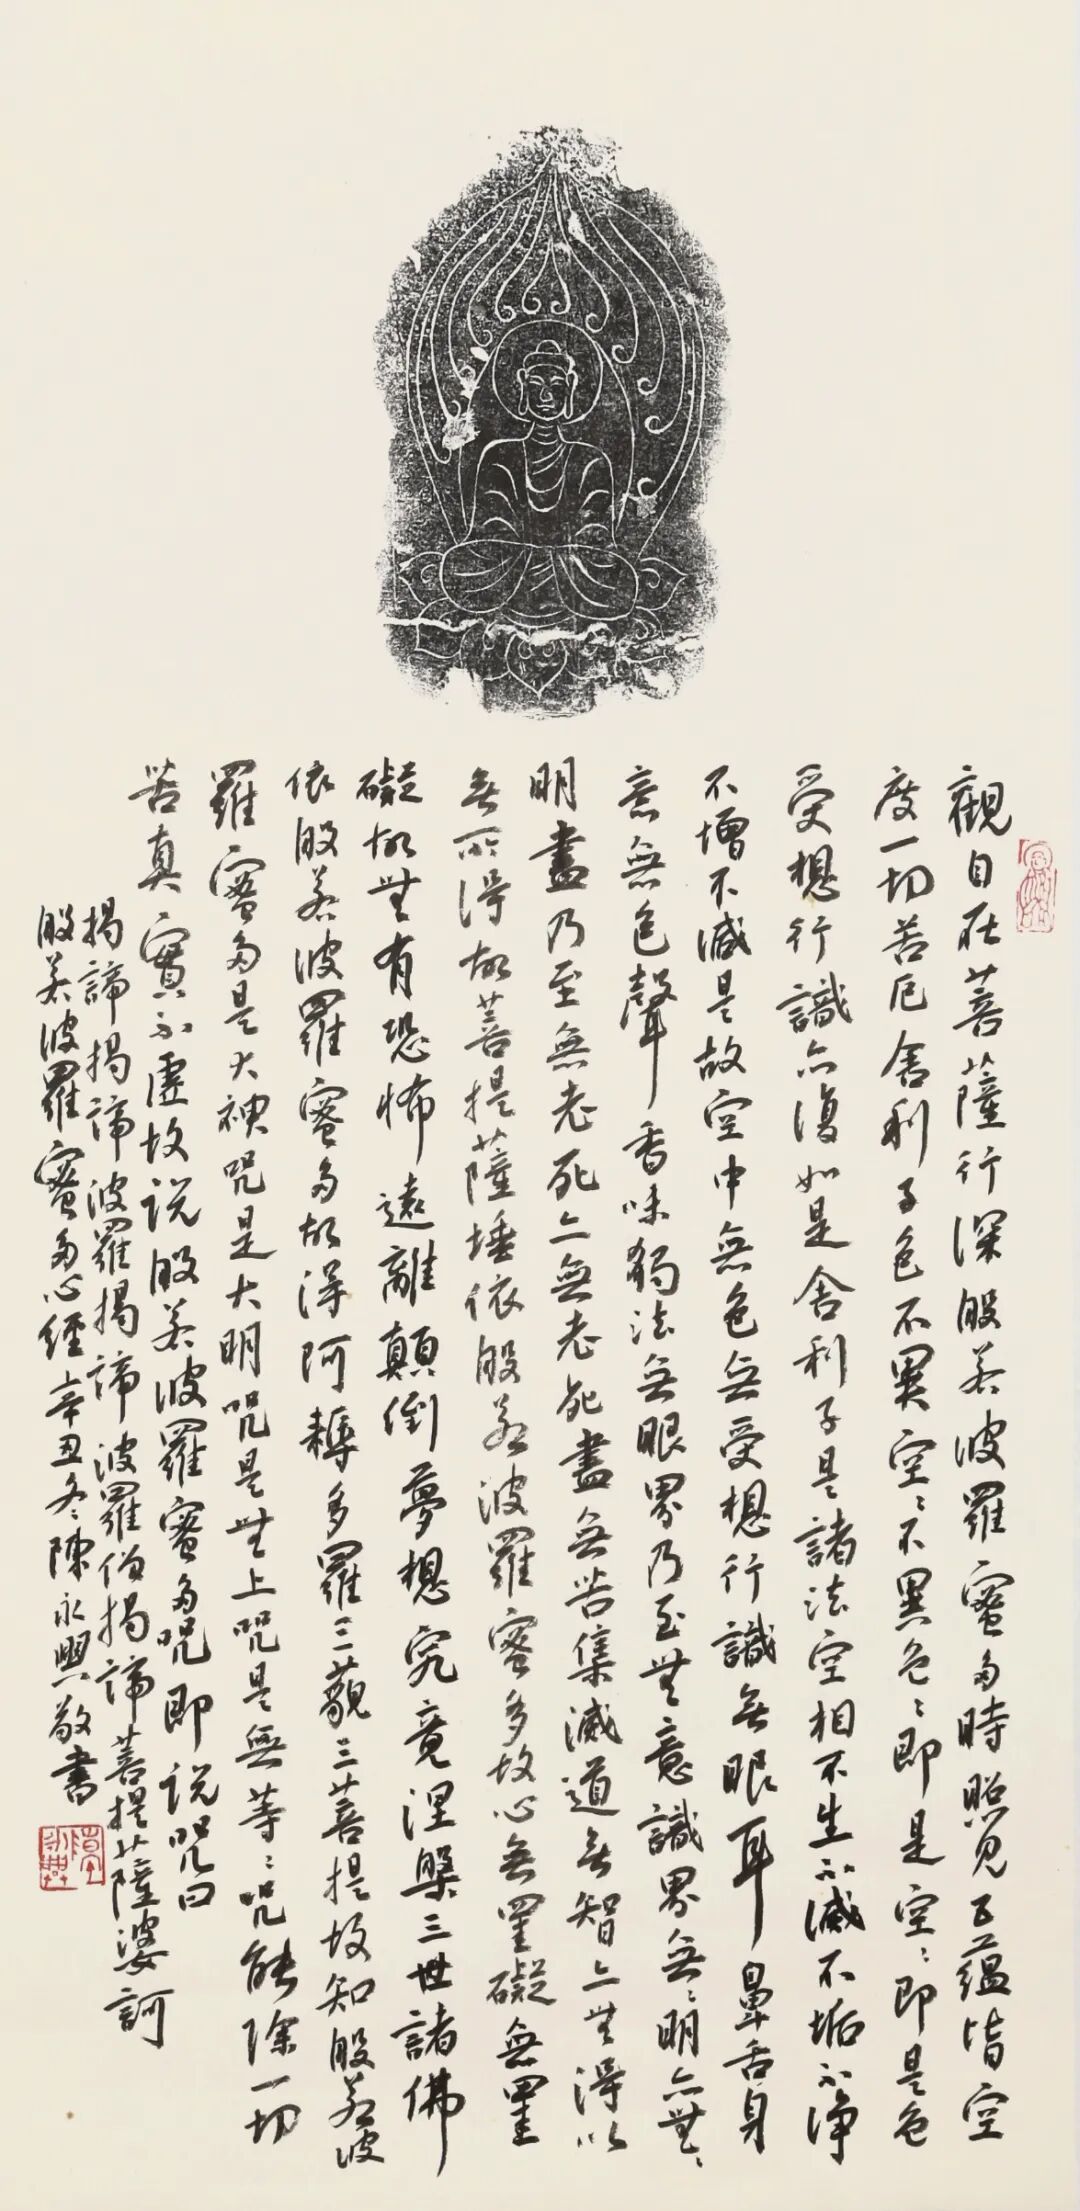 觀自在菩薩行深般若波羅蜜多時照見五蘊皆空
度一切苦厄舍利子色不異空〻不異色〻即是空〻即是色
受想行識亦復如是舍利子是諸法空相不生不滅不垢不淨
不增不減是故空中無色無受想行識無眼耳鼻舌身
意無色聲香味觸法無眼界乃至無意識界無〻明亦無〻
明盡乃至無老死亦無老死盡無苦集滅道無智亦無得以
無所得故菩提薩埵依般若波羅蜜多故心無罣礙無罣
礙故無有恐怖遠離顛倒夢想究竟涅槃三世諸佛
依般若波羅蜜多故得阿耨多羅三藐三菩提故知般若波
羅蜜多是大神咒是大明咒是無上咒是無等〻咒能除一切
苦真實不虛故說般若波羅蜜多咒即說咒曰
揭諦揭諦波羅揭諦波羅僧揭諦菩提薩婆訶
般若波羅蜜多心經辛丑冬陳永興敬書
陳永興